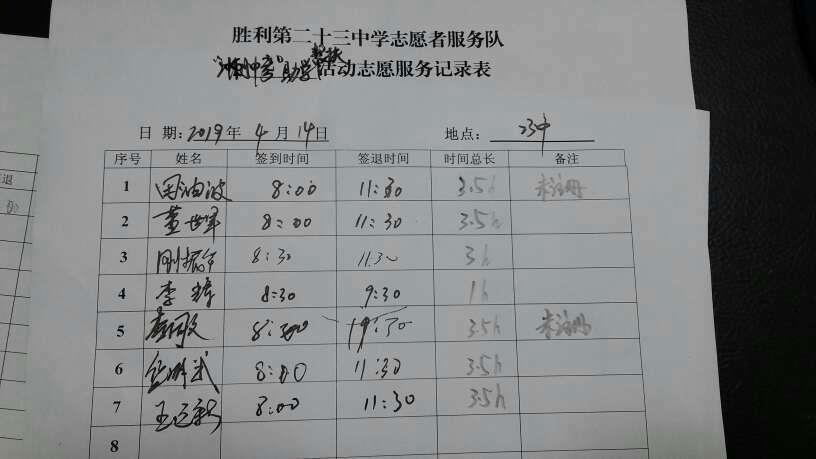 胜利第二十三中学志愿者服务队
助学 活动志愿服务记录表
日 期：2019年 4 月 14日 地点： 23中
序号 姓名 签到时间 签退时间 时间总长 备注
1 8:00 11:30 3.5h 未注册
2 董世军 8:00 11:30 3.5h
3 8:30 11:30 3h
4 李辉 8:30 9:30 1h
5 8:00 11:30 3.5h 未注册
6 8:00 11:30 3.5h
7 8:00 11:30 3.5h
8
退